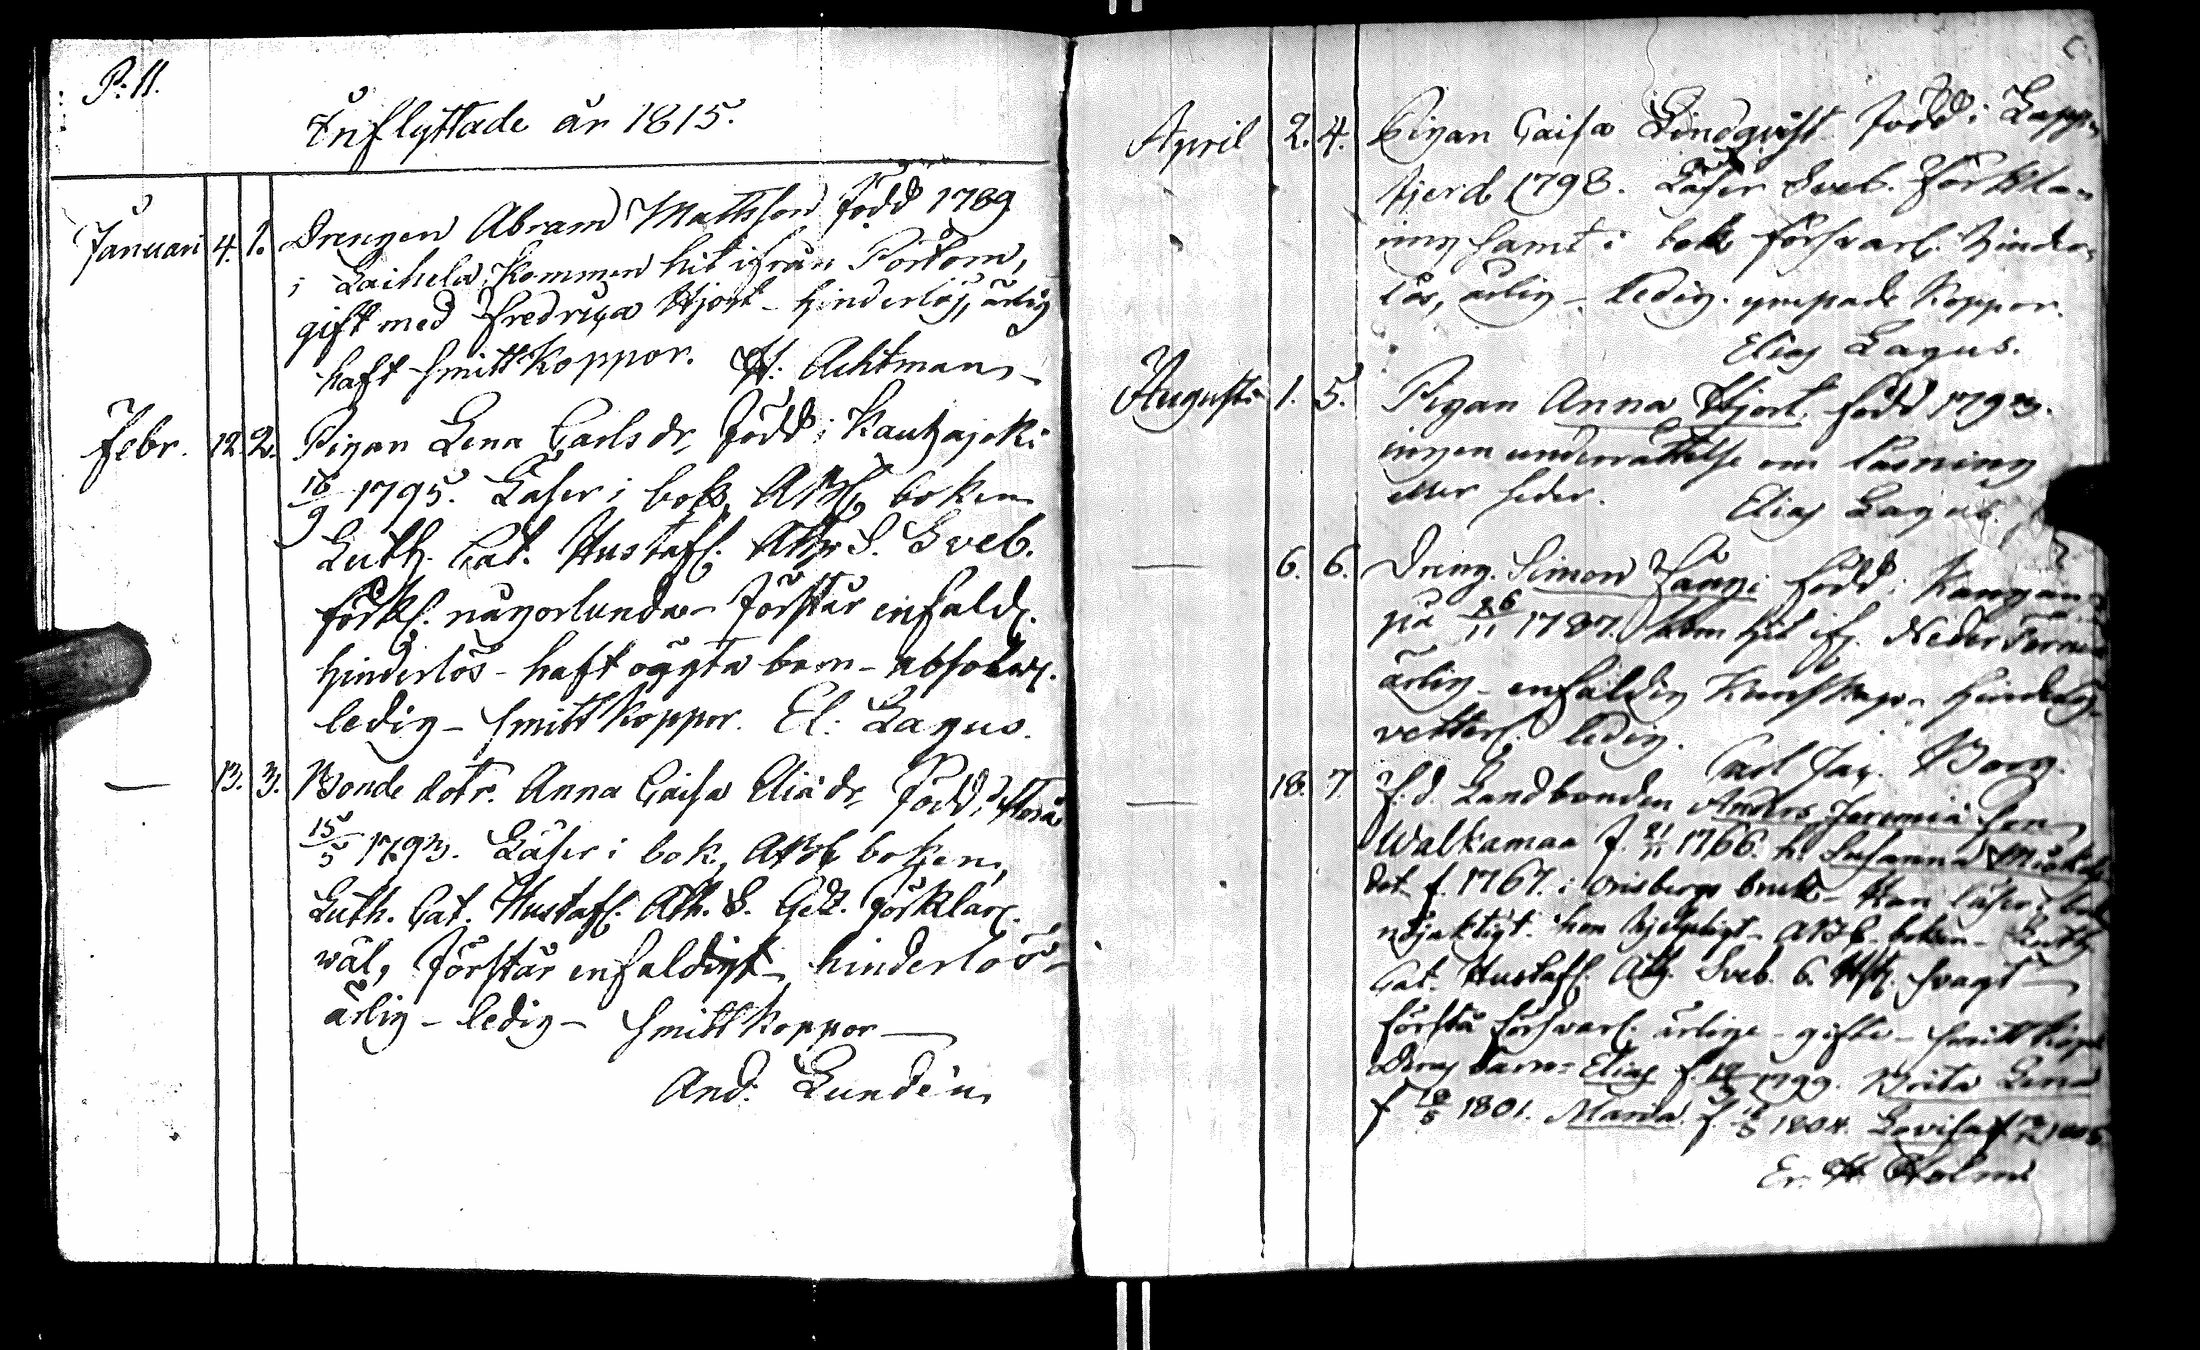 P. 11.
Inflyttade år 1815.
Januari 4. 1. Drengen Abram Mattsson född 1789
i Laihela, kommen hit ifrån Pörtom,
gift med Fredrica Hjort - hinderlös, ärlig
haft smittkoppor. H: Achtman
Febr. 12. 2. Pigan Lena Carlsdr, född i Kauhajoki
16/9 1795. Läser i bok, ABC boken
Luth. Cat. Hustafl. Ath. S. Sveb.
förkl. någorlunda - förstår enfald.
hinderlös - haft oägta barn - absolv.
ledig - smittkoppor. El: Lagus.
— 13. 3. Bonde dotr. Anna Caisa Eliædr, född i
15/5 1793. Läser i bok, ABC boken,
Luth. Cat. Hustafl. Ath. S. Gez. förklar.
wäl, förstår enfaldigt - hinderlös -
ärlig - ledig - smittkoppor —
And: Lundén
April 2. 4. Pigan Caisa Lindqvist född i Lapp-
fjerd 1798. Läser Sveb. förkla-
ring samt i bok försvarl. hinder-
lös, ärlig - ledig. ympade koppor.
Elias Lagus.
Augusti 1. 5. Pigan Anna Hjort född 1793.
ingen underrättelse om läsning
eller seder. Elias Lagus.
— 6. 6. Dreng. Simon född i
på 26/11 1787. kom hit ifr. Neder
ärlig - enfaldig kunskap - hinderlös
vetterl. ledig.
Carl Jac. Borg.
— 18. 7. F.d. Landbonden Anders Jeremiæ son
Walkamaa f. 21/11 1766. h. Susanna Michels
dot. f. 1767. i Orisbergs bruk - Han läser i bok
nöjaktigt. hon hjelpligt - ABC boken - Luth
Cat. Hustafl. Ath. Sveb. 6. Hst. svagt —
förstå försvarl. ärlige - gifte - smittkopp
Deras barn: Elias f. 1799. Brita Lena
f. 18/5 1801. Maria f. 1804. Lovisa f.
Er. H. Holm